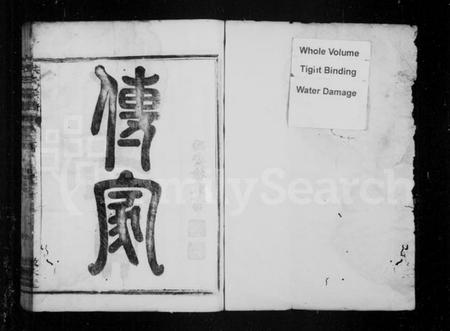 傳家
Whole Volume
Tight Binding
Water Damage
FamilySearch